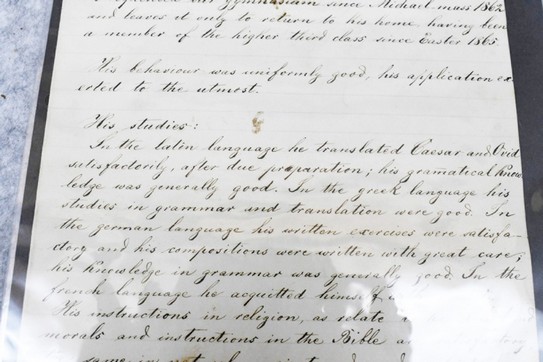 our Gymnasium since Michael mass 1862
and leaves it only to return to his home, having been
a member of the higher third class since Easter 1865
His behaviour was uniformly good, his application ex-
erted to the utmost.
His studies:
In the latin language he translated Caesar and Ovid
satisfactorily, after due preparation; his gramatical know
ledge was generally good. In the greek language his
studies in grammar and translation were good. In
the german language his written exercises were satisfa-
ctory and his compositions were written with great care;
his knowledge in grammar was generally good. In the
french language he acquitted himself
His instructions in religion, as relate
morals and instructions in the Bible
same in